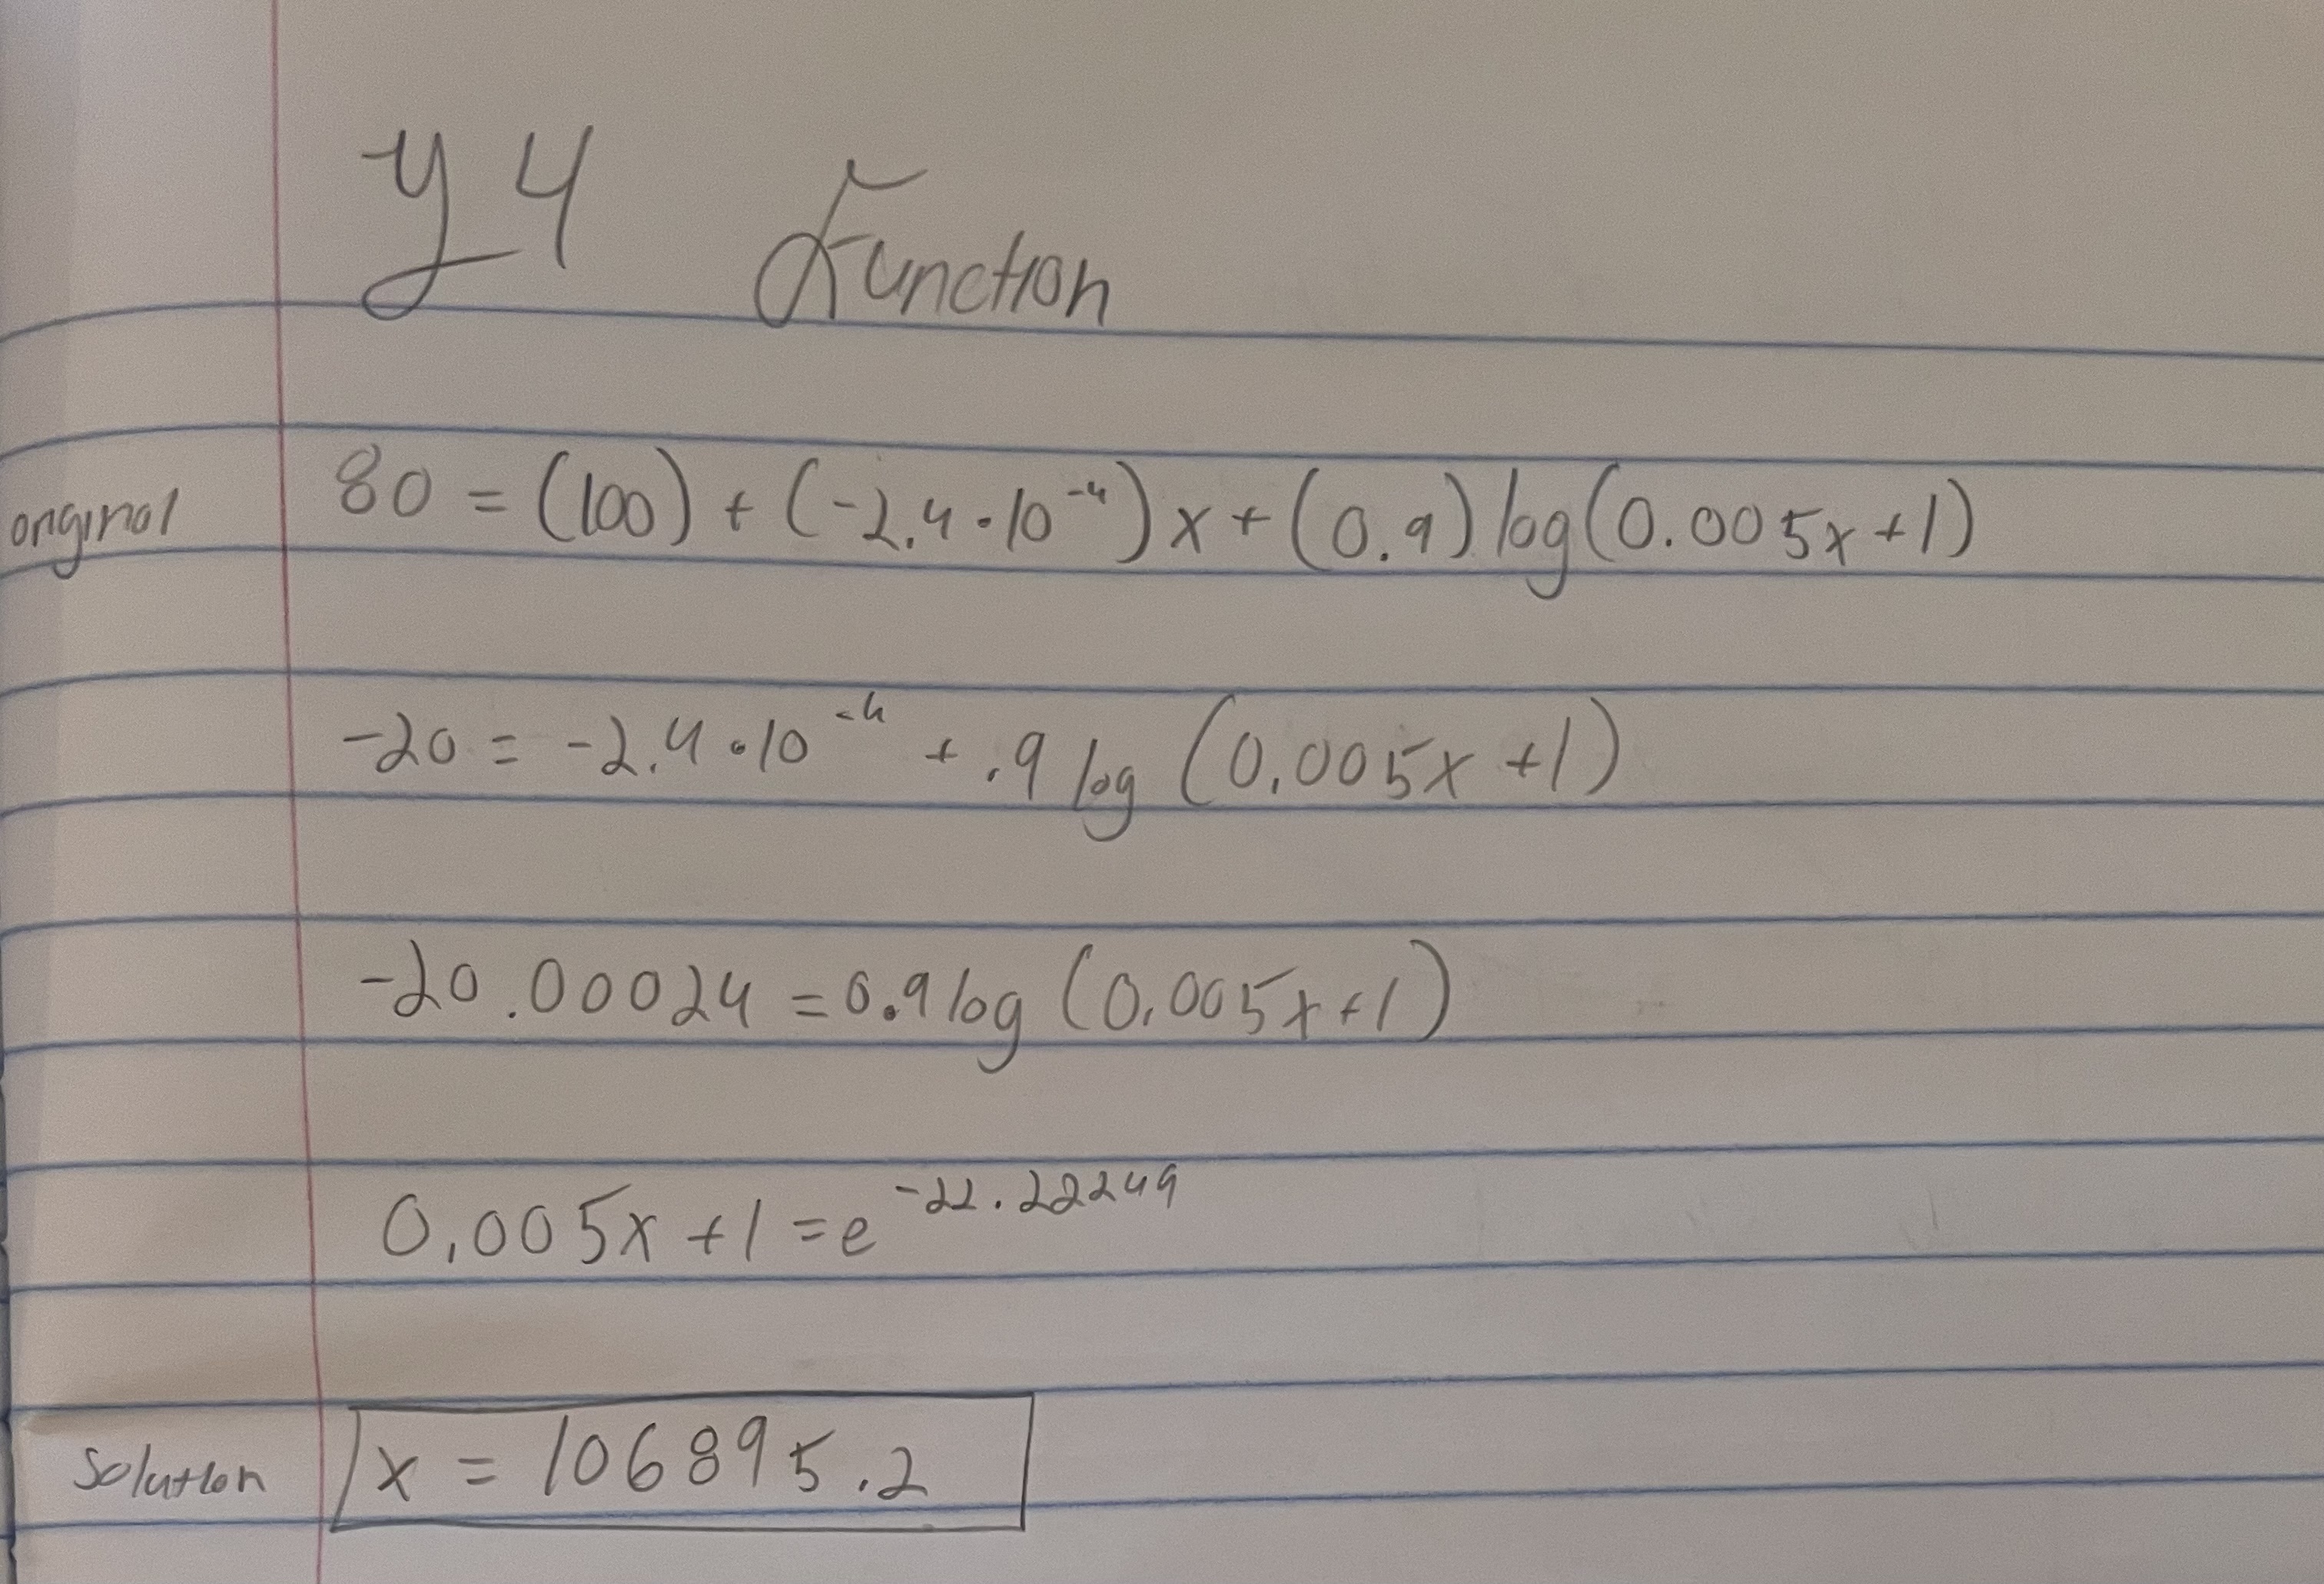 y4 Function
original 80 = (100) + (-2.4·10⁻⁴)x + (0.9)log(0.005x+1)
-20 = -2.4·10⁻⁴ + .9 log (0.005x +1)
-20.00024 = 0.9 log (0.005x+1)
0.005x +1 = e^-22.22249
Solution x = 106895.2